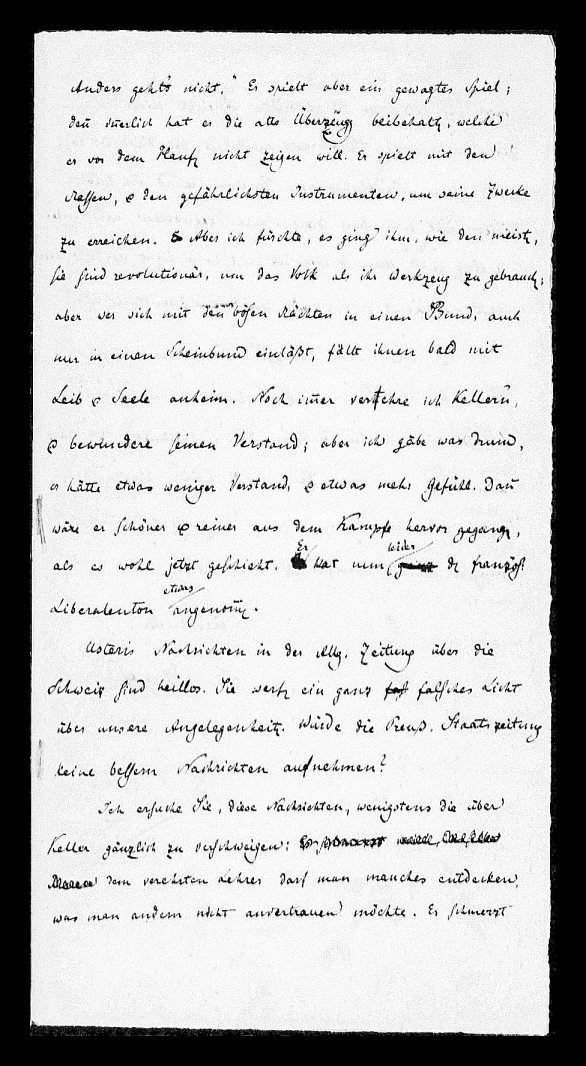 Anders geht's nicht." Er spielt aber ein gewagtes Spiel;
deñ iñerlich hat er die alte Überzeug beibehalt, welche
er vor dem Hauf nicht zeigen will. Er spielt mit den
Massen, & den gefährlichsten Instrumenten, um seine Zwecke
zu erreichen. Aber ich fürchte, es ging ihm, wie den meist,
sie sind revolutionär, um das Volk als ihr Werkzeug zu gebrauch;
aber wer sich mit den bösen Mächten in einen Bund, auch
nur in einen Scheinbund einläßt, fällt ihnen bald mit
Leib & Seele anheim. Noch im̃er verehre ich Kellern,
& bewundere seinen Verstand; aber ich gäbe was drum,
er hätte etwas weniger Verstand, & etwas mehr Gefühl. Dañ
wäre er schöner & reiner aus dem Kampfe hervor gegang,
als es wohl jetzt geschieht. Er hat nun leider d franzöß
Liberalenton etwas angenom̃.
Usteris Nachrichten in der Allg. Zeitung über die
Schweiz sind heillos. Sie werf ein ganz falsches Licht
über unsere Angelegenheit. Würde die Preuß. Staatszeitung
keine bessern Nachrichten aufnehmen?
Ich ersuche Sie, diese Nachrichten, wenigstens die über
Keller gänzlich zu verschweigen:
dem verehrten Lehrer darf man manches entdecken,
was man andern nicht anvertrauen möchte. Es schmerzt